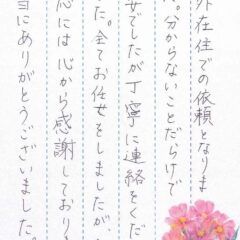 外在住での依頼となりま
ん。分からないことだらけで
安でしたが丁寧に連絡をくだ
た。全てお任せをしましたが、
心には心から感謝しており
当にありがとうございました。